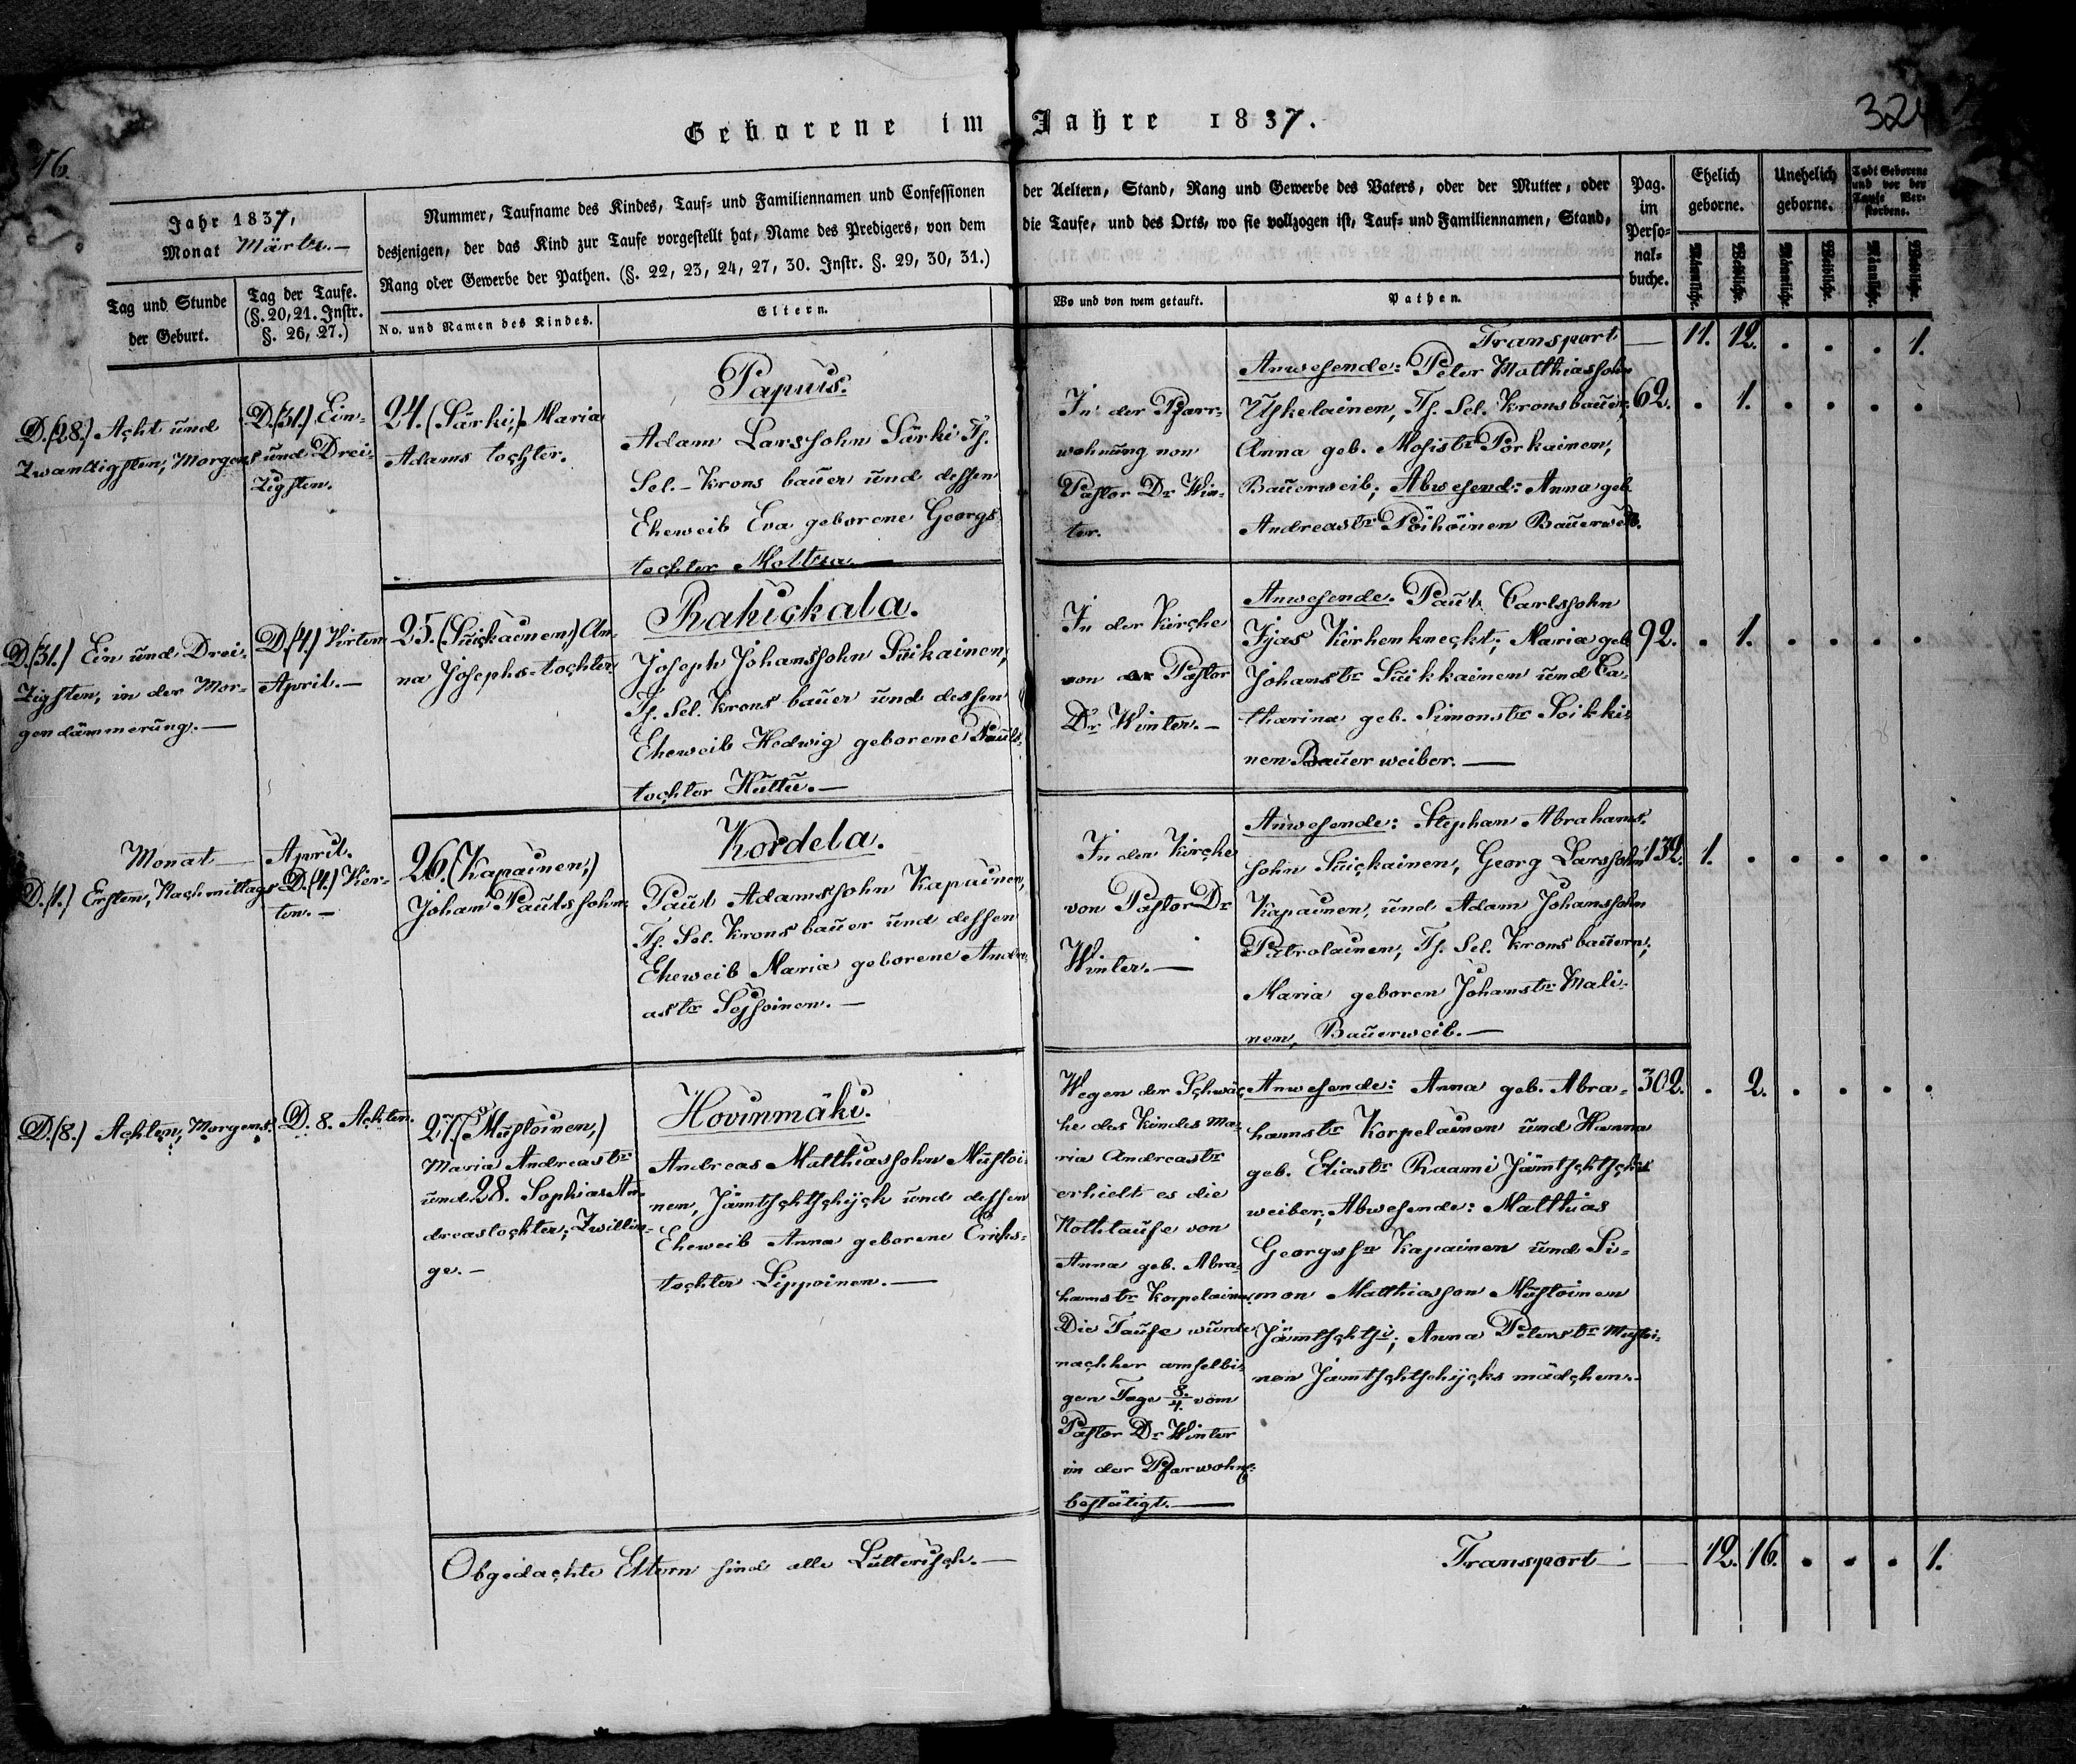 Geborene im Jahre 1837.
324
16.
Jahr 1837,
Monat Märtz.—
Tag und Stunde
der Geburt.
Tag der Taufe.
(§. 20, 21. Instr.
§. 26, 27.)
Nummer, Taufname des Kindes, Tauf- und Familiennamen und Confessionen
desjenigen, der das Kind zur Taufe vorgestellt hat, Name des Predigers, von dem
Rang oder Gewerbe der Pathen. (§. 22, 23, 24, 27, 30. Instr. §. 29, 30, 31.)
No. und Namen des Kindes.
Eltern.
der Aeltern, Stand, Rang und Gewerbe des Vaters, oder der Mutter, oder
die Taufe, und des Orts, wo sie vollzogen ist, Tauf- und Familiennamen, Stand,
Wo und von wem getauft.
Pathen.
Pag.
im
Perso-
nal-
buche.
Ehelich
geborne.
Unehelich
geborne.
Todt Geborene
und vor der
Taufe Ver-
storbene.
Männliche.
Weibliche.
Männliche.
Weibliche.
Männliche.
Weibliche.
Transport — 11. 12. . . . 1.
D.(28.) Acht und
Zwanzigsten, Morgens
D.(31.) Ein-
und Drei-
zigsten.
24. (Särki,) Maria
Adams tochter.
Papuis.
Adam Larssohn Särki Tf.
Sel. Krons bauer und dessen
Eheweib Eva geborene Georgs
tochter Mottra —
In der Pfarr-
wohnung von
Pastor Dr Win-
ter.
Anwesende: Peter Matthiassohn
Uskelainen, Tf. Sel. Kronsbauer,
Anna geb. Mosistr Porkainen,
Bauerweib; Abwesend: Anna geb.
Andreastr Pöihöinen Bauerweib.
62. . 1. . . . .
D.(31.) Ein und Drei-
zigsten, in der Mor-
gendämmerung. —
D.(4.) Virten
April. —
25. (Suickainen,) An-
na Josephs-tochter.
Rahickala.
Joseph Johanssohn Suikainen,
Tf. Sel. Krons bauer und dessen
Eheweib Hedwig geborene Pauls-
tochter Huttu. —
In der Kirche
von Pastor
Dr Winter. —
Anwesende. Paul Carlssohn
Ijas Kirhenknecht; Maria geb
Johanstr Suikkainen und Ca-
tharina geb. Simonstr Soikki-
nen Bauer weiber. —
92. . 1. . . . .
Monat — April.
D.(1.) Ersten, Nachmittags
D.(4.) Vier-
ten. —
26. (Kapainen,)
Johan Paulssohn.
Kordela.
Paul Adamssohn Kapainen,
Tf. Sel. Krons bauer und dessen
Eheweib Maria geborene Andre-
astr Sojsoinen. —
In der Kirche
von Pastor Dr
Winter. —
Anwesende: Stephan Abrahams-
sohn Suickainen, Georg Larssohn
Kapainen, und Adam Johanssohn
Putrolainen, Tf. Sel. Krons bauern,
Maria geboren Johanstr Mali-
nen, Bauerweib. —
132. 1. . . . . .
D.(8.) Achten, Morgens.
D. 8. Achten.
27. (Mustoinen,)
Maria Andreastr
und 28. Sophia An-
dreastochter; Zwillin-
ge. —
Hovinmäki.
Andreas Matthiassohn Mustoi-
nen, Jämtschtschijck und dessen
Eheweib Anna geborene Eriks-
tochter Lippoinen. —
Wegen der Schwäc-
he des Kindes Ma-
ria Andreastr
erhielt es die
Nothtaufe von
Anna geb. Abra-
hamstr Korpelainen.
Die Taufe wurde
nachher amselbi-
gen Tage 8./4. vom
Pastor Dr Winter
in der Pfarwohng.
bestätigt. —
Anwesende: Anna geb. Abra-
hamstr Korpelainen und Hanna
geb. Eliastr Raami Jämtschtschiks
weiber, Abwesende: Matthias
Georgssn Kapainen und Si-
mon Matthiasson Mustoinen
Jämtschtsi; Anna Peterstr Mustoi-
nen Jämtschtschijcks mädchen. —
302. . 2. . . . .
Obgedachte Eltern sind alle Lutterisch. —
Transport — 12. 16. . . . 1.